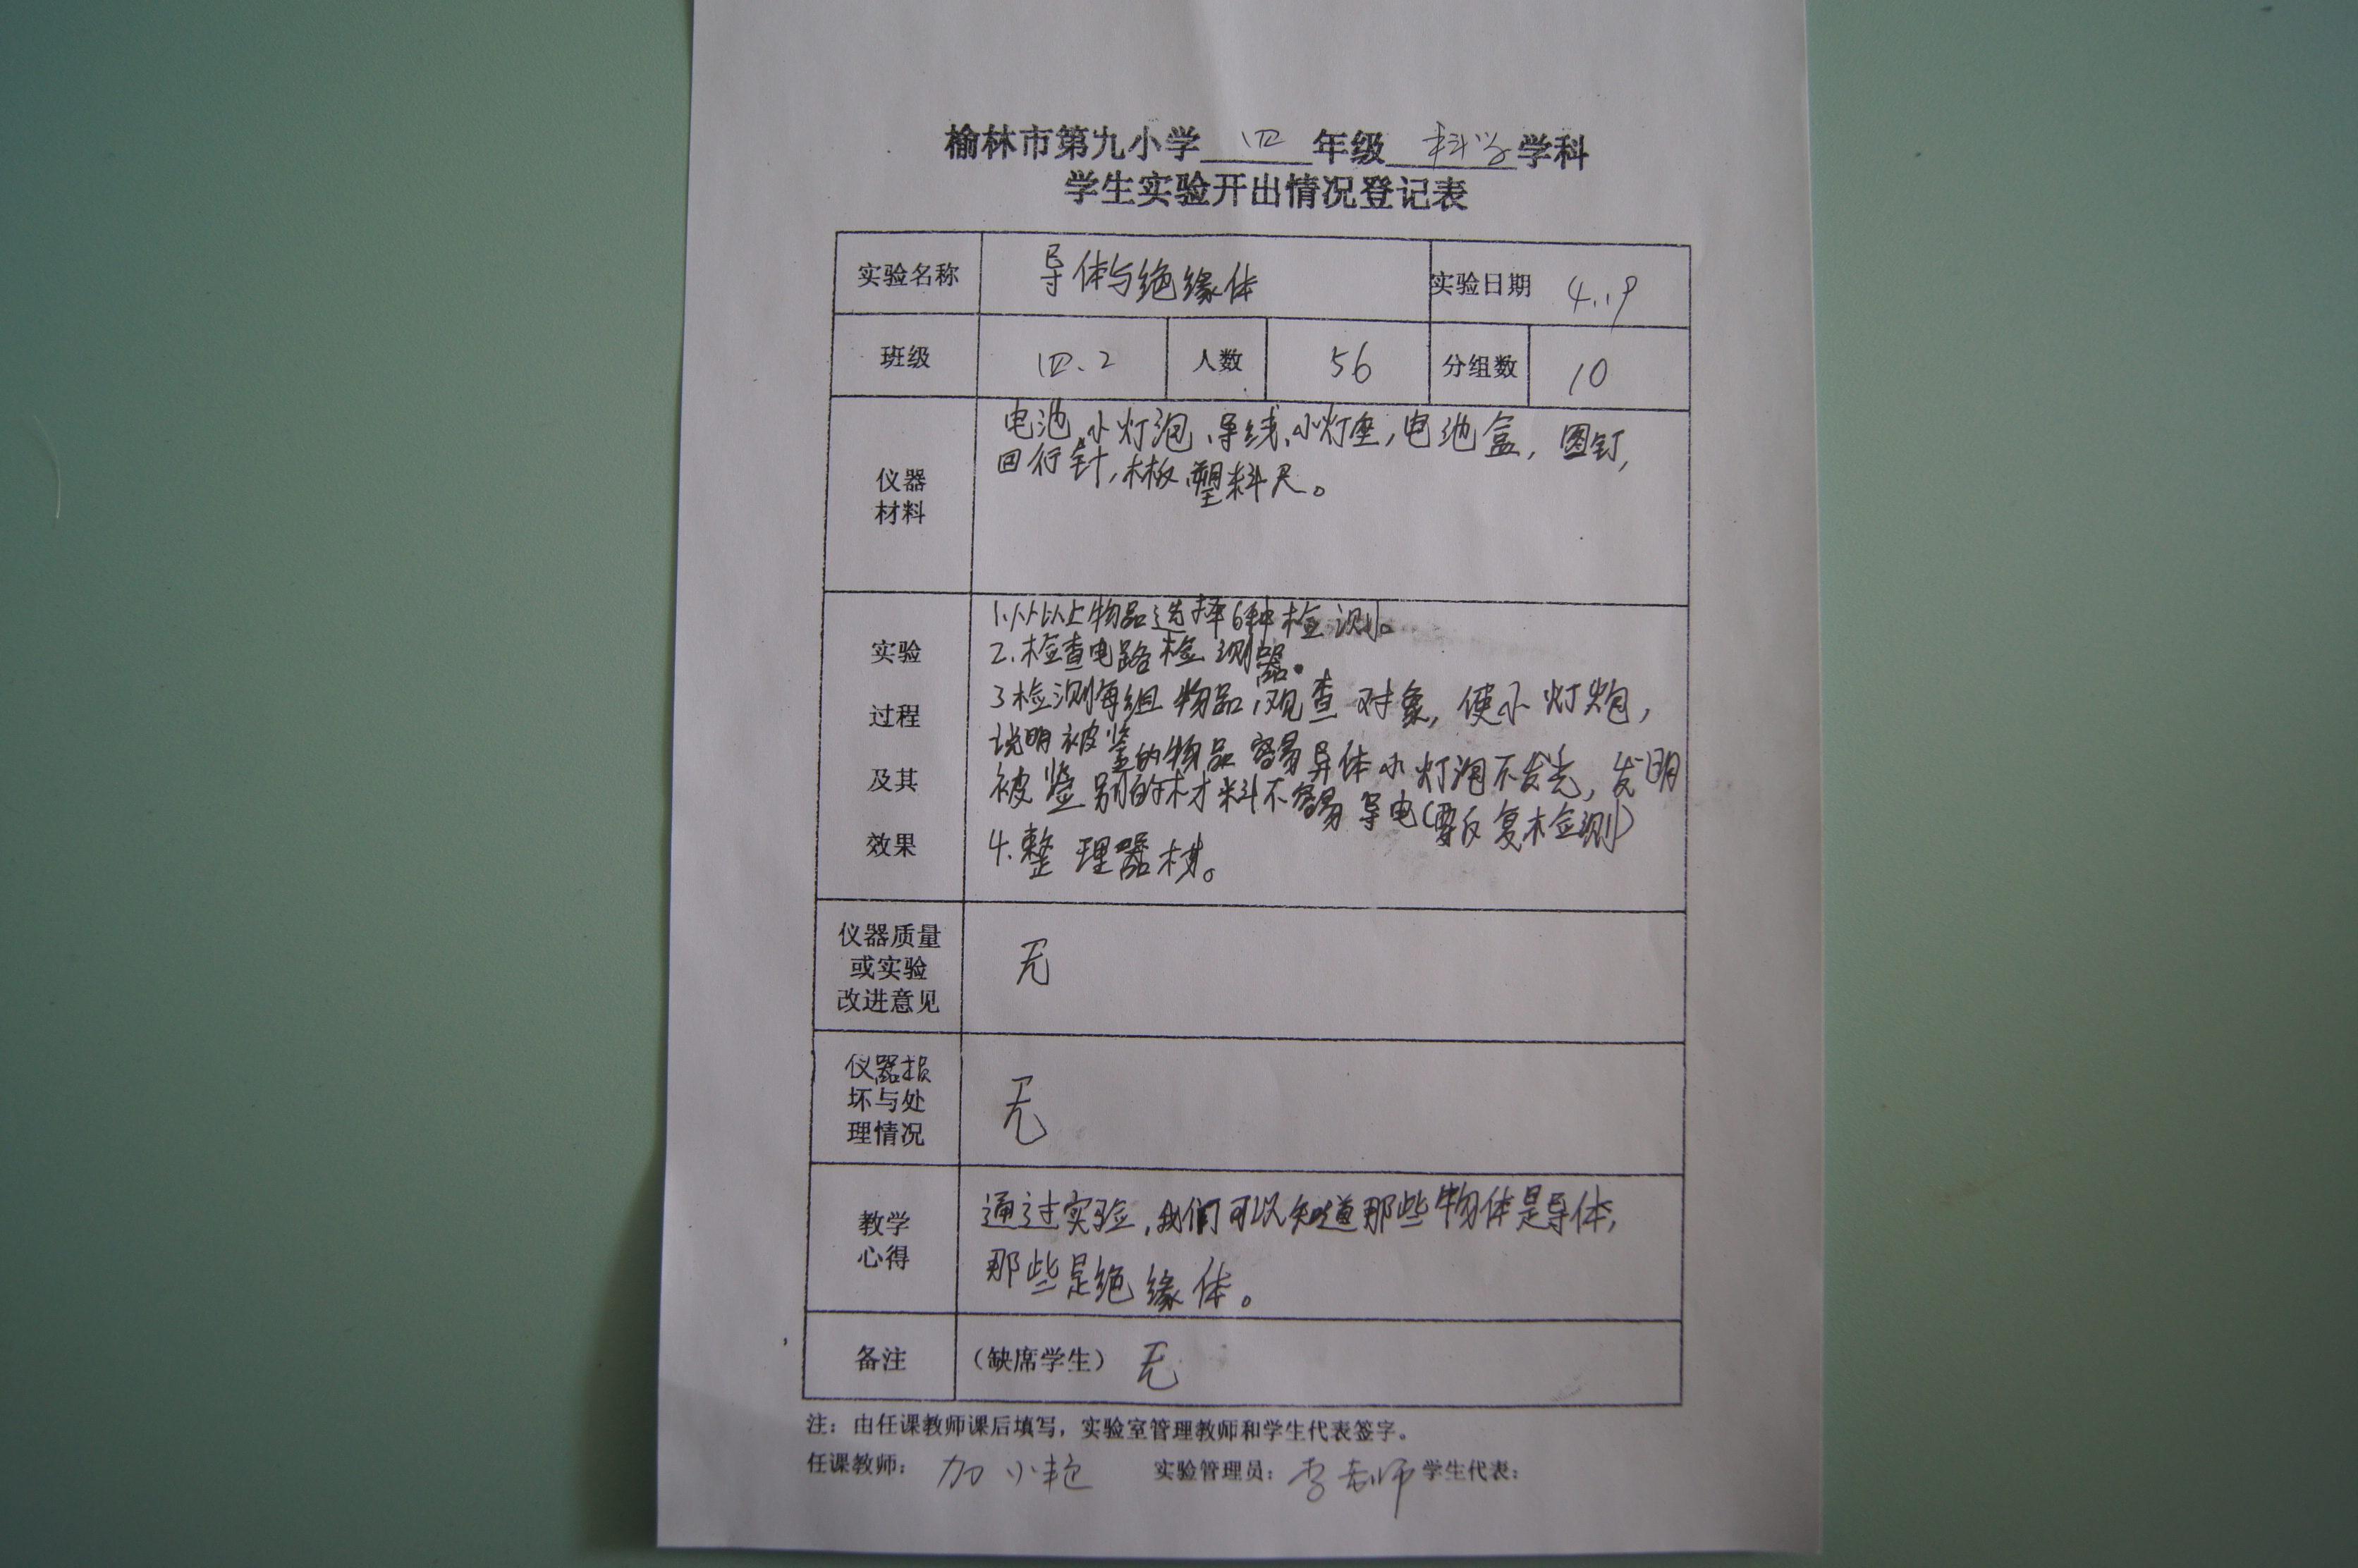 榆林市第九小学 四 年级 科学 学科
学生实验开出情况登记表
实验名称 导体与绝缘体 实验日期 4.19
班级 四.2 人数 56 分组数 10
仪器
材料
电池、小灯泡、导线、小灯座,电池盒,图钉,
回行针,木板、塑料尺。
实验
过程
及其
效果
1.从以上物品选择6种检测。
2.检查电路检测器。
3检测每组物品,观查对象,使小灯炮,
说明被鉴的物品容易导体小灯泡不发光,发明
被鉴别的材料不容易导电(要反复检测)
4.整理器材。
仪器质量
或实验
改进意见
无
仪器损
坏与处
理情况
无
教学
心得
通过实验,我们可以知道那些物体是导体,
那些是绝缘体。
备注 (缺席学生) 无
注:由任课教师课后填写,实验室管理教师和学生代表签字。
任课教师: 加小艳 实验管理员: 李老师 学生代表: